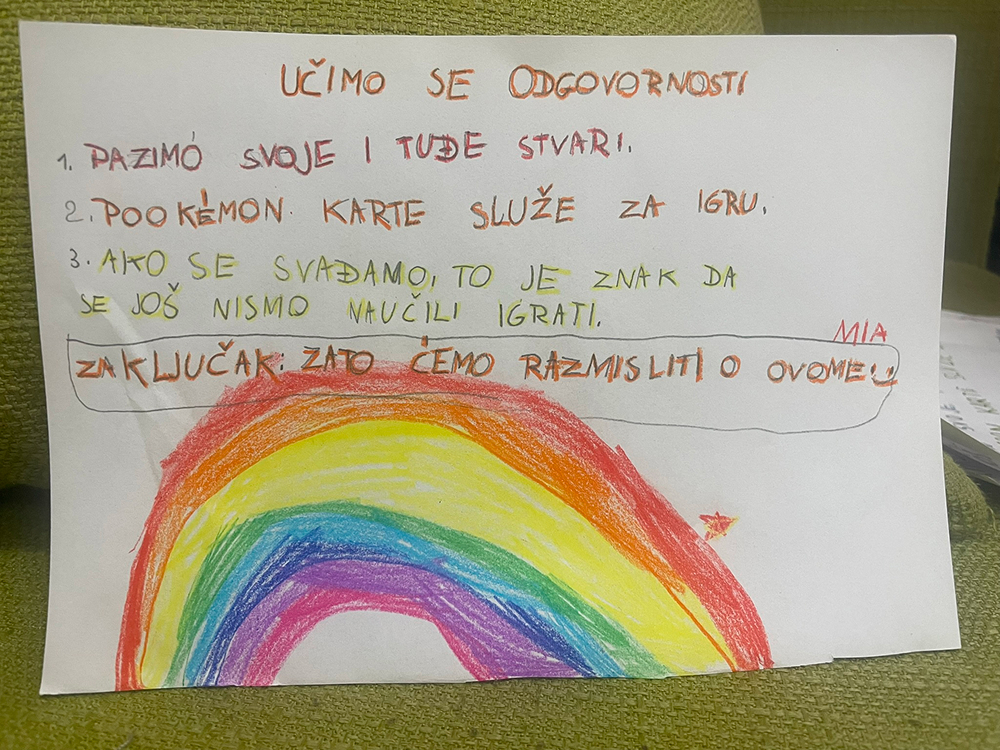 UČIMO SE ODGOVORNOSTI
1. PAZIMO SVOJE I TUĐE STVARI.
2. POOKÉMON KARTE SLUŽE ZA IGRU.
3. AKO SE SVAĐAMO, TO JE ZNAK DA
SE JOŠ NISMO NAUČILI IGRATI.
MIA
ZAKLJUČAK: ZATO ĆEMO RAZMISLITI O OVOME